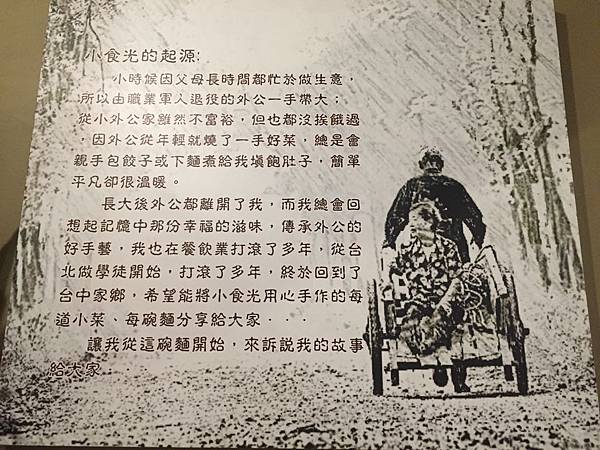 小食光的起源:
小時候因父母長時間都忙於做生意，
所以由職業軍人退役的外公一手帶大；
從小外公家雖然不富裕，但也都沒挨餓過
，因外公從年輕就燒了一手好菜，總是會
親手包餃子或下麵煮給我填飽肚子，簡單
平凡卻很溫暖。
長大後外公都離開了我，而我總會回
想起記憶中那份幸福的滋味，傳承外公的
好手藝，我也在餐飲業打滾了多年，從台
北做學徒開始，打滾了多年，終於回到了
台中家鄉，希望能將小食光用心手作的每
道小菜、每碗麵分享給大家．．．
讓我從這碗麵開始，來訴說我的故事
給大家